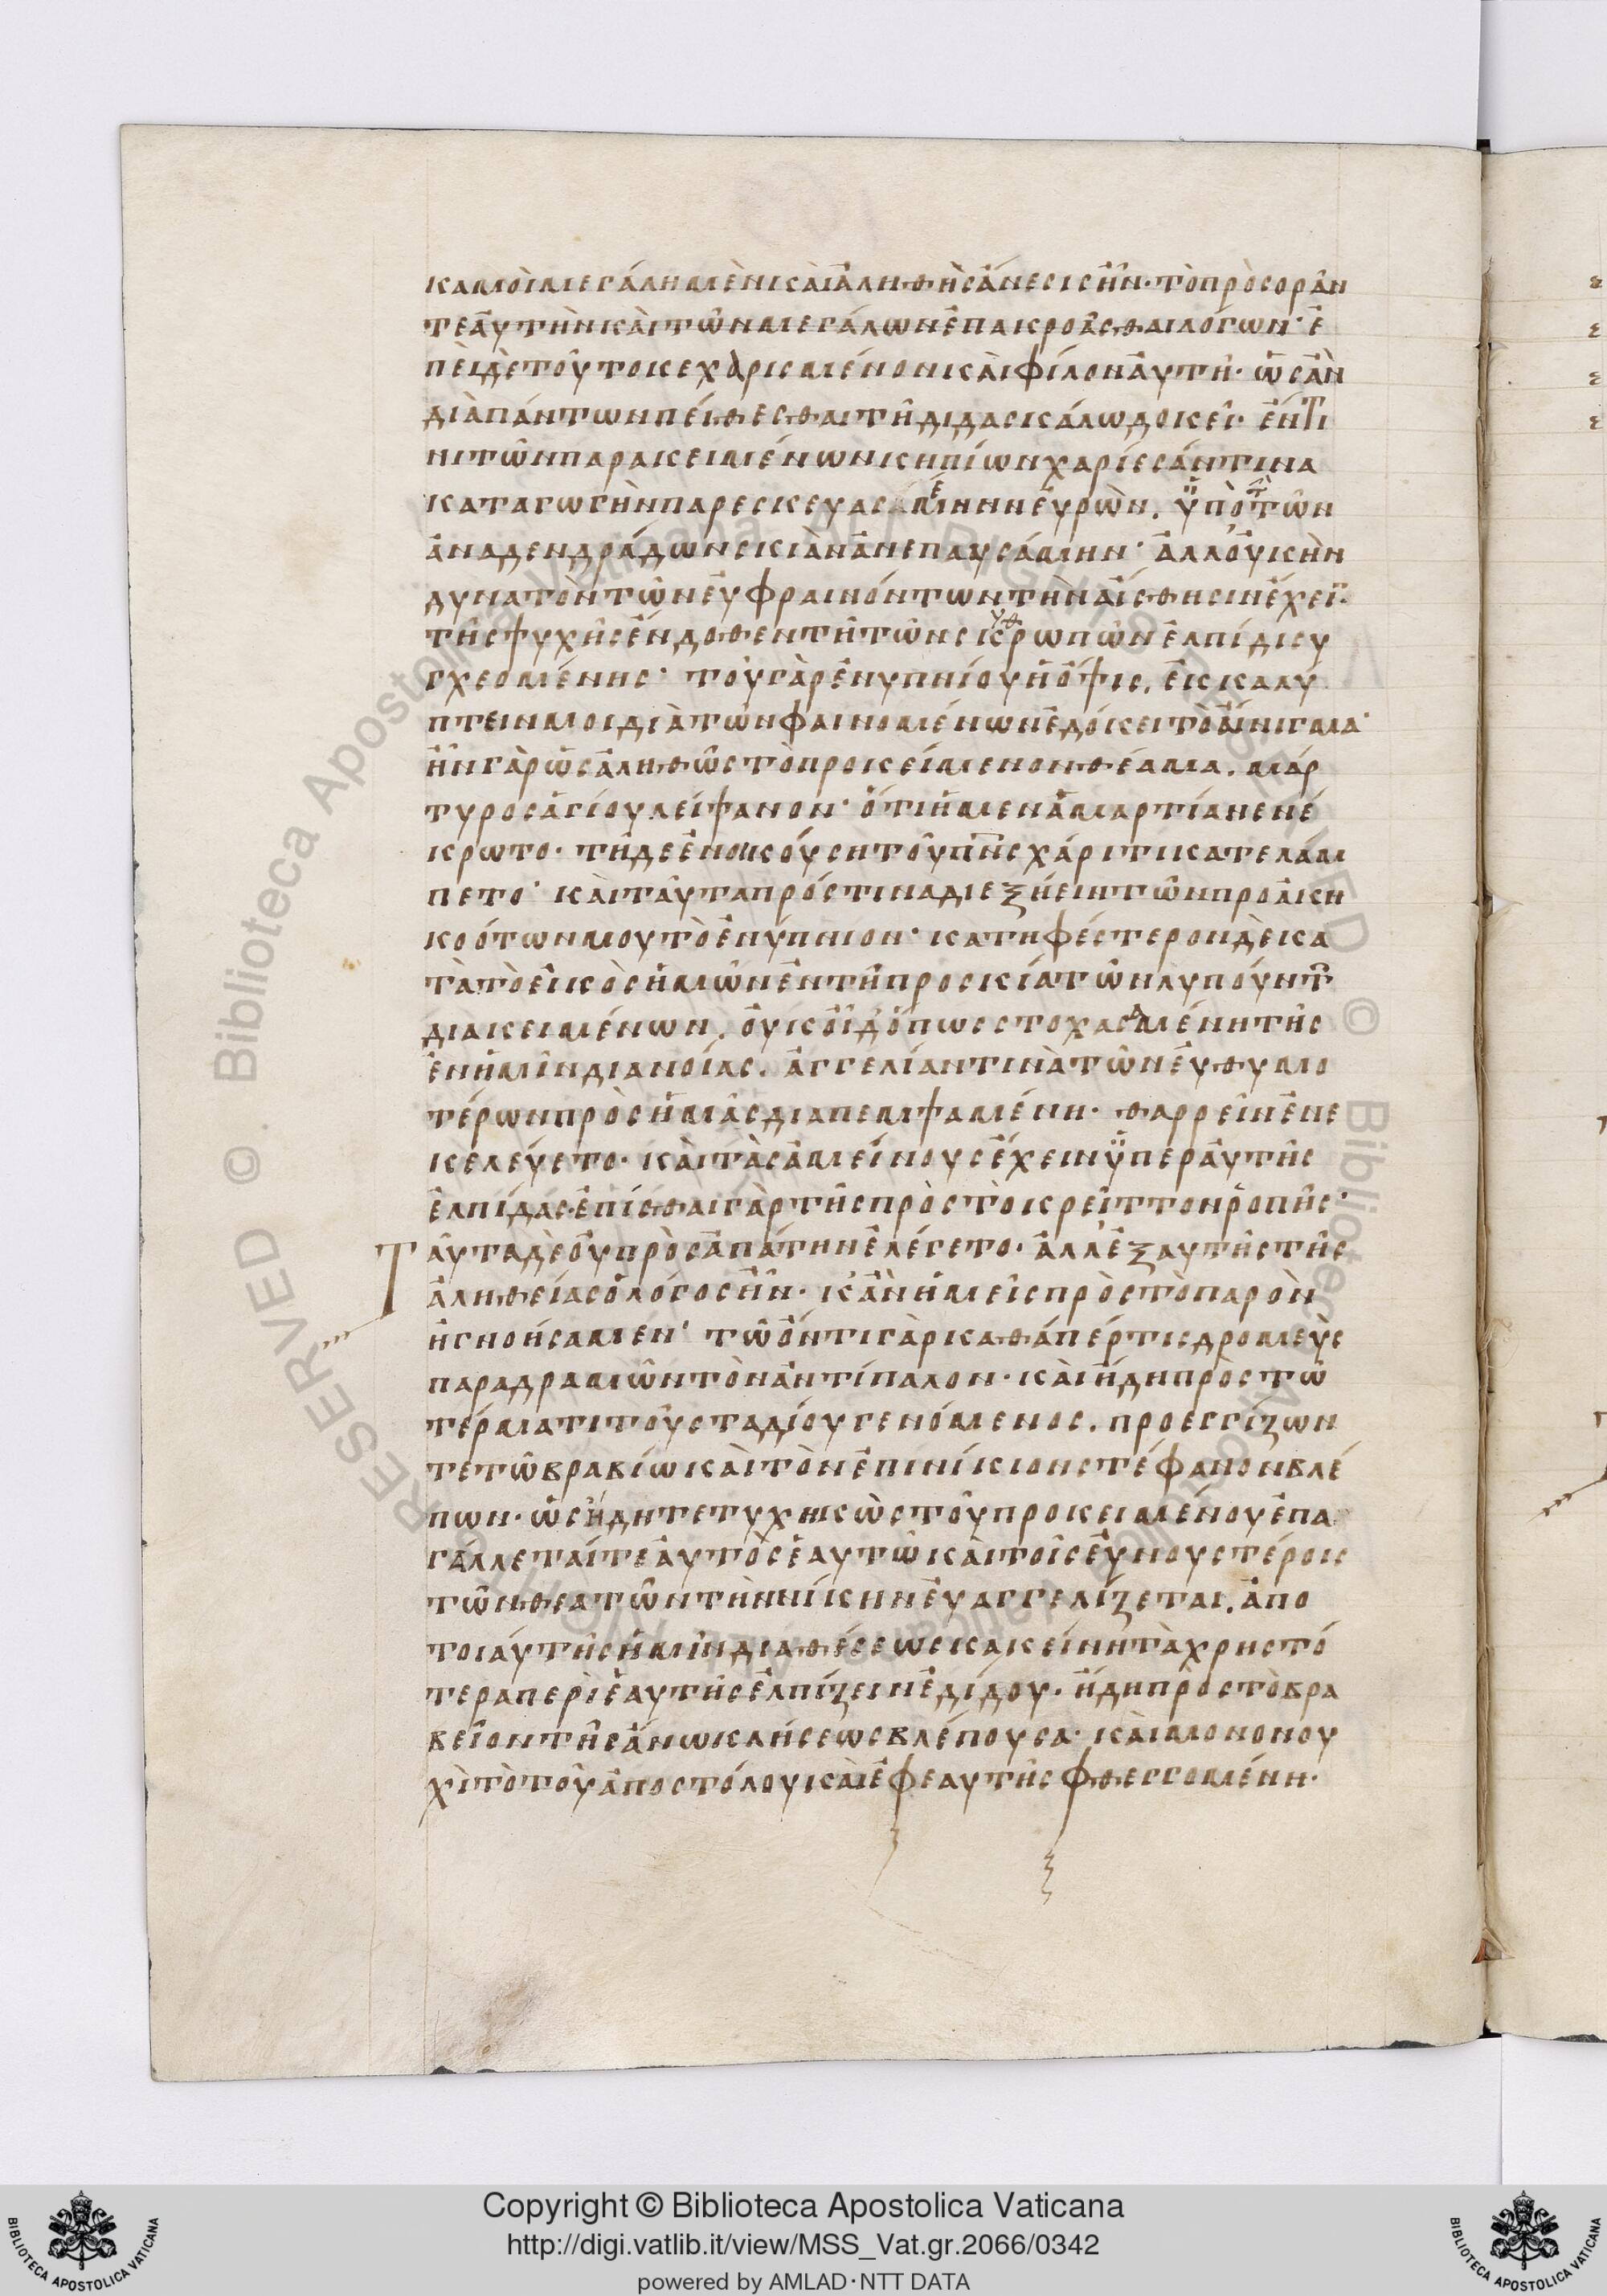 καμοὶ μεγάλη μὲν καὶ ἀληθὴς ἄνεσις ἦν· τὸ προσορᾶν
τε αὐτὴν καὶ τῶν μεγάλων ἐπακροᾶσθαι λόγων· ἐ
πεὶ δὲ τοῦτο κεχαρισμένον καὶ φίλον αὐτῇ· ὡς ἂν
διὰ πάντων πείθεσθαι τῆ διδασκάλω δοκεῖ· ἔν τι
νι τῶν παρακειμένων κηπίων χαρίεσάν τινα
καταγωγὴν παρεσκευασμένην εὑρὼν. ὑπὸ τὴν τῶν
ἀναδενδράδων σκιὰν ἀνεπαυσάμην· ἀλλ' οὐκ ἦν
δυνατὸν τῶν εὐφραινόντων τὴν αἴσθησιν ἔχειν·
τῆς ψυχῆς ἔνδοθεν τῆ τῶν σκυθρωπῶν ἐλπίδι συ
γχεομένης· τοῦ γὰρ ἐνυπνίου ἡ ὄψις. ἐκκαλυ
πτειν μοι διὰ τῶν φαινομένων ἐδόκει τὸ αἴνιγμα·
ἦν γὰρ ὡς ἀληθῶς τὸ προκείμενον θέαμα. μάρ
τυρος ἁγίου λείψανον· ὅ τῆ μεν ἁμαρτία νενέ
κρωτο· τῆ δε ἐνοικούση τοῦ πνς χάριτι κατελάμ
πετο· καὶ ταῦτα πρός τινα διεξήειν τῶν προακη
κοότων μου τὸ ἐνύπνιον· κατηφέστερον δὲ κα
τὰ τὸ εἰκὸς ἡμῶν ἐν τῆ προσκία τῶν λυπούντ
διακειμένων. οὐκ οἶδ' ὅπως στοχασαμένη τῆς
ἐν ἡμῖν διανοίας. ἀγγελίαν τινὰ τῶν εὐθυμο
τέρων πρὸς ἡμᾶς διαπεμψαμένη· θαρρεῖν ἐνε
κελεύετο· καὶ τὰς ἀμείνους ἔχειν ὑπερ αὐτῆς
ἐλπίδας· ἐπίσθαι γὰρ τῆς πρὸς τὸ κρεῖττον ῥοπῆς·
Ταῦτα δὲ οὐ πρὸς ἀπάτην ἐλέγετο· ἀλλ' ἐξ αυτῆς τῆς
ἀληθείας ὁ λόγος ἦν· κἂν ἡμεῖς πρὸς τὸ παρὸν
ἠγνοήσαμεν· τῶ ὄντι γὰρ καθάπέρ τις δρομεὺς
παραδραμῶν τὸν ἀντίπαλον· καὶ ἤδη πρὸς τῶ
τέρματι τοῦ σταδίου γενόμενος. προσεγγίζων
τε τῶ βραβίω καὶ τὸν ἐπινίκιον στέφανον βλέ
πων· ὡς ἤδη τετυχηκὼς τοῦ προκειμένου ἐπα
γάλλεταί τε αὐτὸς ἑαυτῶ καὶ τοῖς εὐνουστέροις
τῶν θεατῶν τὴν νίκην εὐαγγελίζεται. ἀπο
τοιάυτῆς ἡμῖν διαθέσεως κακείνη τὰ χρηστό
τερα περὶ ἑαυτῆς ἐλπίζειν ἐδίδου· ἤδη πρὸς τὸ βρα
βεῖον τῆς ἄνω κλήσεως βλέπουσα· καὶ μονονου
χὶ τὸ τοῦ ἀποστόλου καὶ ἐφ εαυτῆς φθεγγομένη·
Copyright © Biblioteca Apostolica Vaticana
http://digi.vatlib.it/view/MSS_Vat.gr.2066/0342
powered by AMLAD·NTT DATA